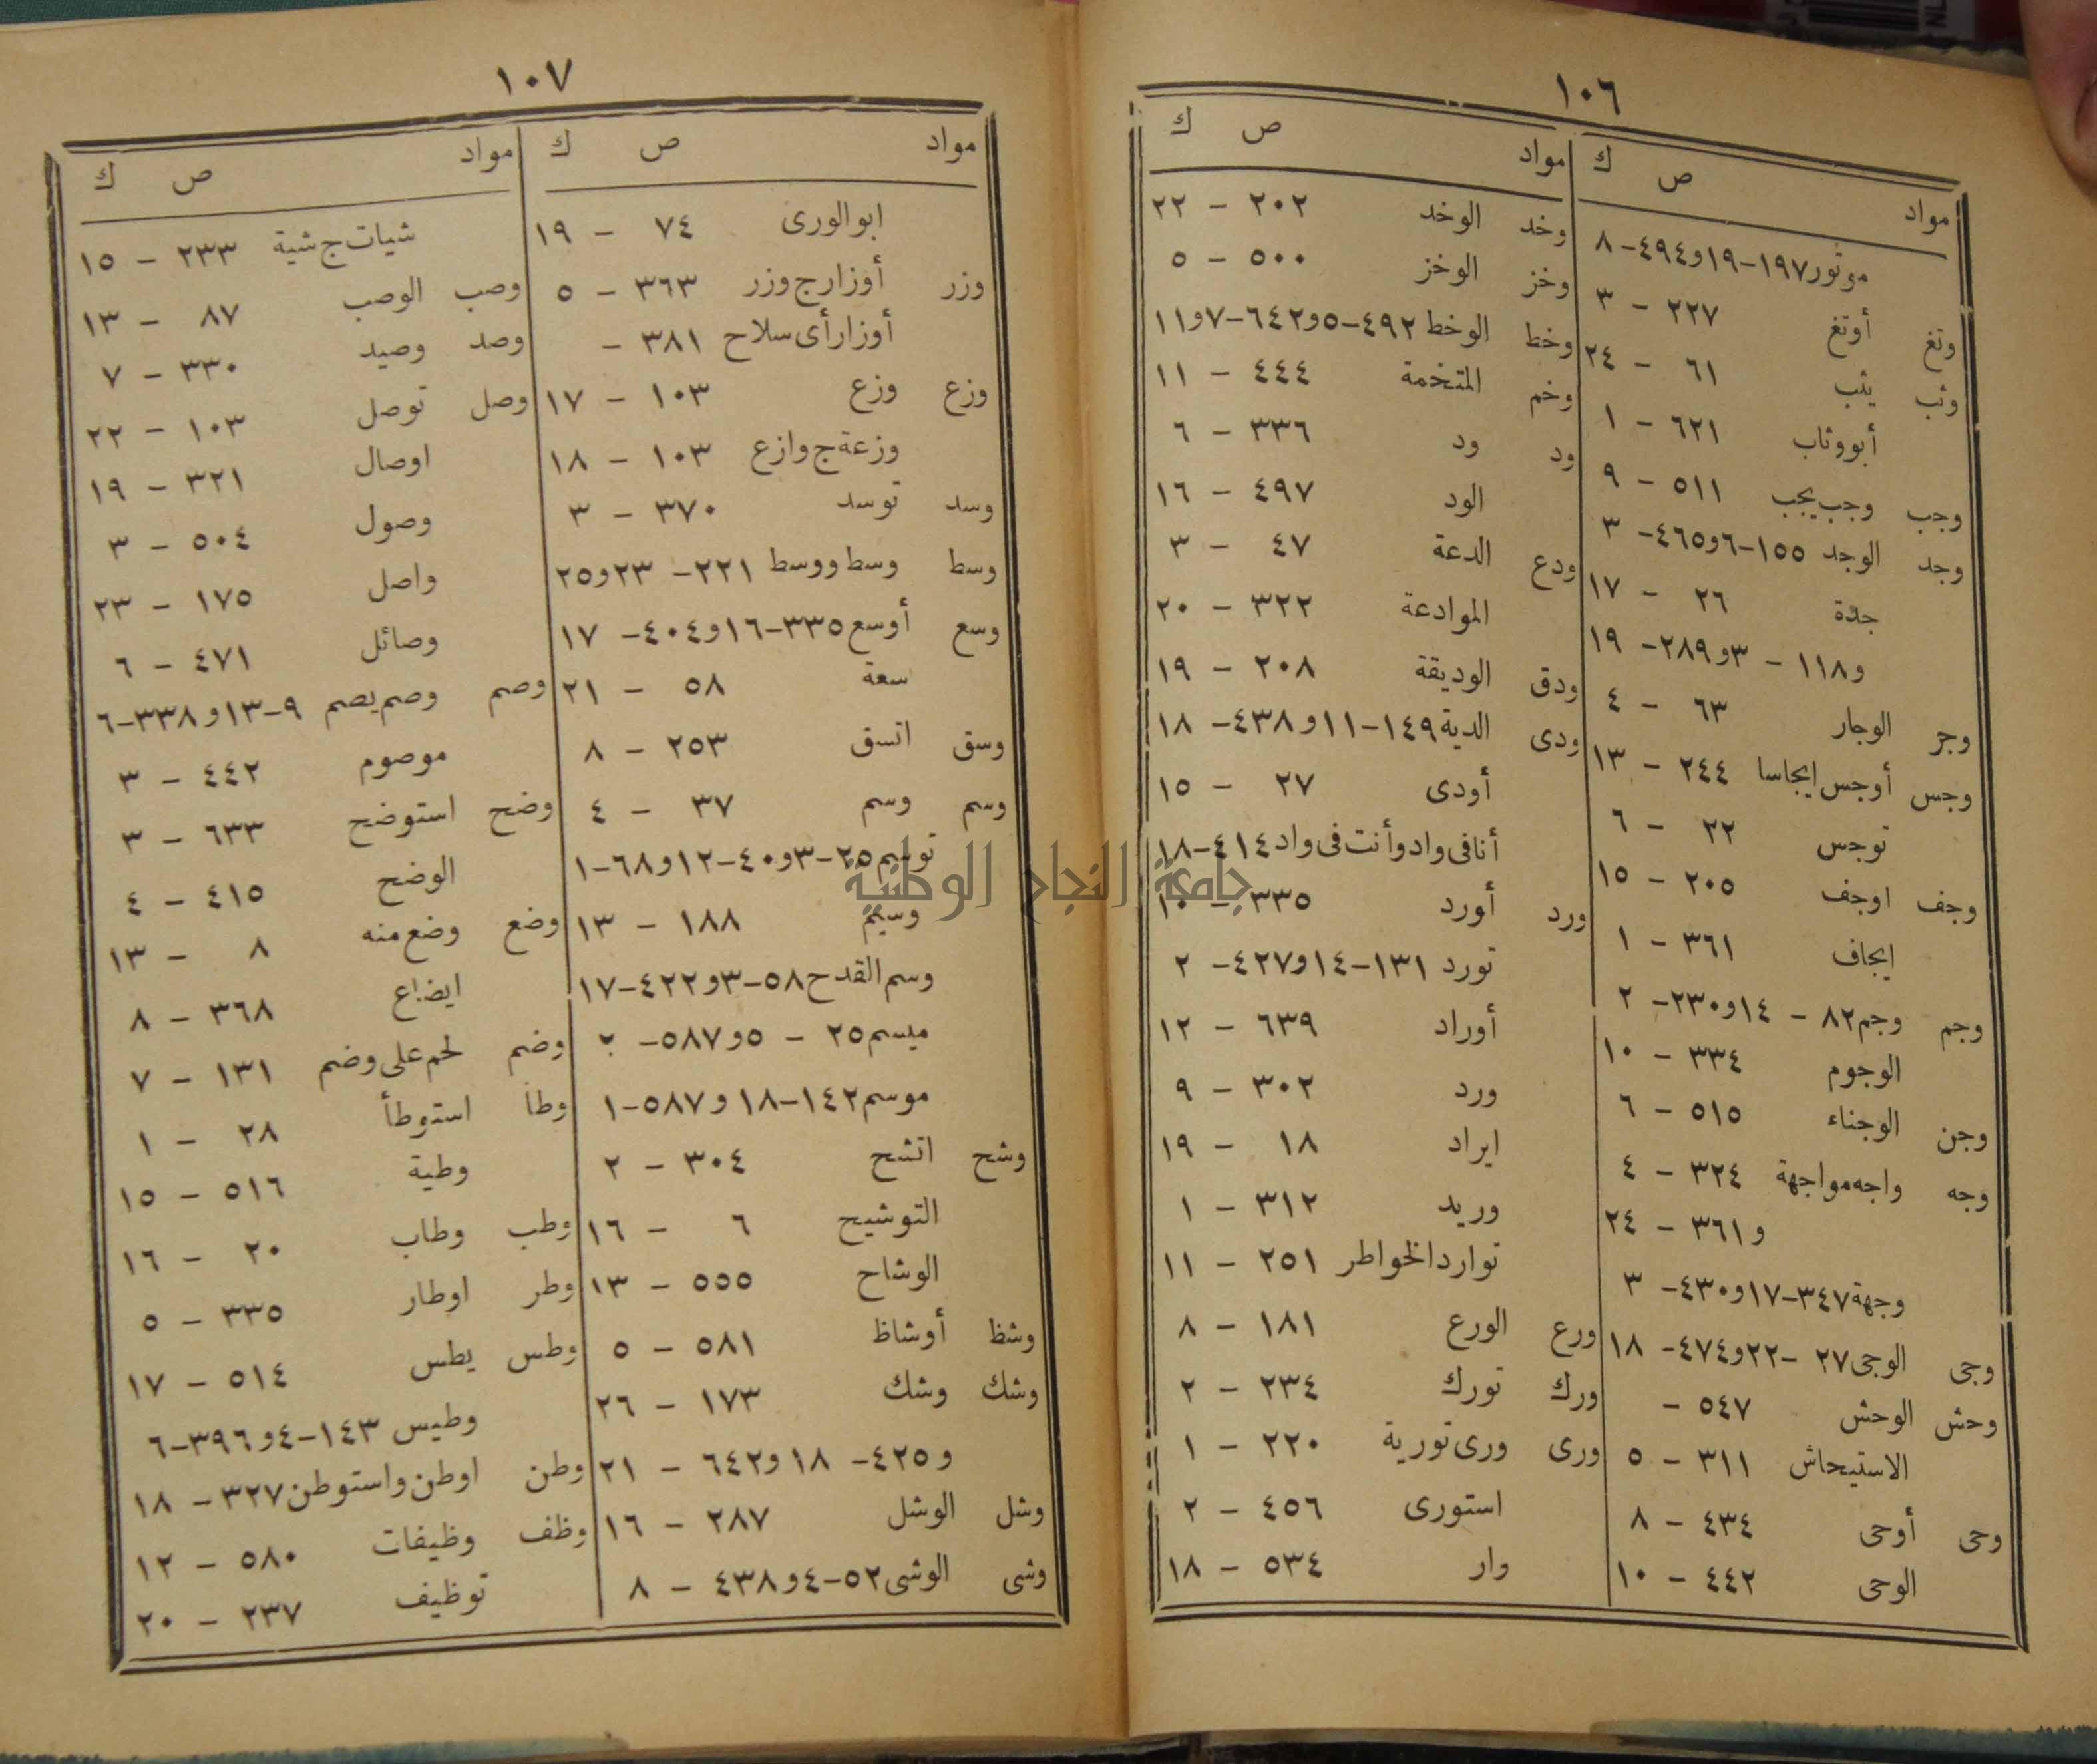 ١٠٦
مواد ص ك
موتور ١٩٧-١٩ و٤٩٤- ٨
وتغ أوتغ ٢٢٧ - ٣
وثب يثب ٦١ - ٢٤
أبووثاب ٦٢١ - ١
وجب وجب يجب ٥١١ - ٩
وجد الوجد ١٥٥-٦ و٤٦٥- ٣
جدة ٢٦ - ١٧
و١١٨ - ٣ و٢٨٩- ١٩
وجر الوجار ٦٣ - ٤
وجس أوجس ايجاسا ٢٤٤ - ١٣
توجس ٢٢ - ٦
وجف اوجف ٢٠٥ - ١٥
ايجاف ٣٦١ - ١
وجم وجم ٨٢ - ١٤ و٢٣٠- ٢
الوجوم ٣٣٤ - ١٠
وجن الوجناء ٥١٥ - ٦
وجه واجه مواجهة ٣٢٤ - ٤
و٣٦١ - ٢٤
وجهة ٣٤٧-١٧ و٤٣٠- ٣
وجى الوجى ٢٧ -٢٢ و٤٧٤- ١٨
وحش الوحش ٥٤٧ -
الاستيحاش ٣١١ - ٥
وحى أوحى ٤٣٤ - ٨
الوحى ٤٤٢ - ١٠
مواد ص ك
وخد الوخد ٢٠٢ - ٢٢
وخز الوخز ٥٠٠ - ٥
وخط الوخط ٤٩٢-٥ و٦٤٢-٧ و١١
وخم المتخمة ٤٤٤ - ١١
ود ود ٣٣٦ - ٦
الود ٤٩٧ - ١٦
ودع الدعة ٤٧ - ٣
الموادعة ٣٢٢ - ٢٠
ودق الوديقة ٢٠٨ - ١٩
ودى الدية ١٤٩-١١ و٤٣٨- ١٨
أودى ٢٧ - ١٥
أنا فى واد وأنت فى واد ٤١٤-١٨
ورد أورد ٣٣٥ - ١٠
تورد ١٣١-١٤ و٤٢٧- ٢
أوراد ٦٣٩ - ١٢
ورد ٣٠٢ - ٩
ايراد ١٨ - ١٩
وريد ٣١٢ - ١
توارد الخواطر ٢٥١ - ١١
ورع الورع ١٨١ - ٨
ورك تورك ٢٣٤ - ٢
ورى ورى تورية ٢٢٠ - ١
استورى ٤٥٦ - ٢
وار ٥٣٤ - ١٨
١٠٧
مواد ص ك
ابو الورى ٧٤ - ١٩
وزر أوزار ج وزر ٣٦٣ - ٥
أوزار أى سلاح ٣٨١ -
وزع وزع ١٠٣ - ١٧
وزعة ج وازع ١٠٣ - ١٨
وسد توسد ٣٧٠ - ٣
وسط وسط ووسط ٢٢١- ٢٣ و٢٥
وسع أوسع ٣٣٥-١٦ و٤٠٤- ١٧
سعة ٥٨ - ٢١
وسق اتسق ٢٥٣ - ٨
وسم وسم ٣٧ - ٤
توسم ٢٥-٣ و٤٠-١٢ و٦٨-١
وسيم ١٨٨ - ١٣
وسم القدح ٥٨-٣ و٤٢٢-١٧
ميسم ٢٥ - ٥ و٥٨٧-
موسم ١٤٢-١٨ و٥٨٧-١
وشح اتشح ٣٠٤ - ٢
التوشيح ٦ - ١٦
الوشاح ٥٥٥ - ١٣
وشظ أوشاظ ٥٨١ - ٥
وشك وشك ١٧٣ - ٢٦
و٤٢٥- ١٨ و٦٤٢ - ٢١
وشل الوشل ٢٨٧ - ١٦
وشى الوشى ٥٢-٤ و٤٣٨ - ٨
مواد ص ك
شيات ج شية ٢٣٣ - ١٥
وصب الوصب ٨٧ - ١٣
وصد وصيد ٣٣٠ - ٧
وصل توصل ١٠٣ - ٢٢
اوصال ٣٢١ - ١٩
وصول ٥٠٤ - ٣
واصل ١٧٥ - ٢٣
وصائل ٤٧١ - ٦
وصم وصم يصم ٩-١٣ و٣٣٨-٦
موصوم ٤٤٢ - ٣
وضح استوضح ٦٣٣ - ٣
الوضح ٤١٥ - ٤
وضع وضع منه ٨ - ١٣
ايضاع ٣٦٨ - ٨
وضم لحم على وضم ١٣١ - ٧
وطأ استوطأ ٢٨ - ١
وطية ٥١٦ - ١٥
وطب وطاب ٢٠ - ١٦
وطر اوطار ٣٣٥ - ٥
وطس يطس ٥١٤ - ١٧
وطيس ١٤٣-٤ و٣٩٦-٦
وطن اوطن واستوطن ٣٢٧- ١٨
وظف وظيفات ٥٨٠ - ١٢
توظيف ٢٣٧ - ٢٠
جامعة النجاح الوطنية